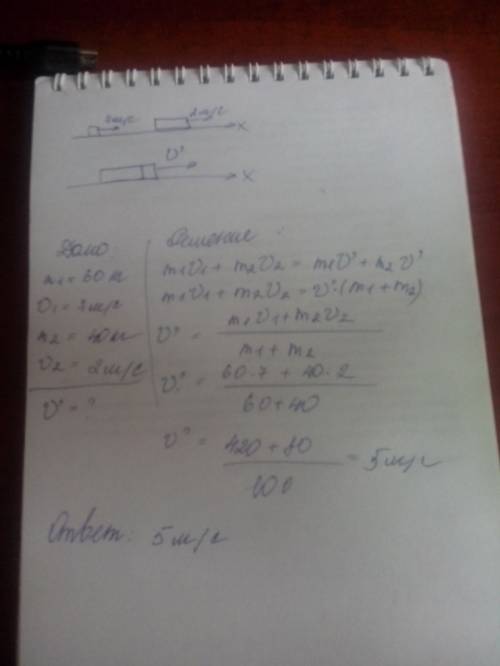 7м/с 2м/с
x
υ'
x
Дано:
m1 = 60 кг
υ1 = 7м/с
m2 = 40кг
υ2 = 2м/с
υ' = ?
Решение:
m1υ1 + m2υ2 = m1υ' + m2υ'
m1υ1 + m2υ2 = υ'(m1 + m2)
υ' = m1υ1 + m2υ2 / m1 + m2
υ' = 60·7 + 40·2 / 60+40
υ' = 420 + 80 / 100 = 5м/с
Ответ: 5м/с